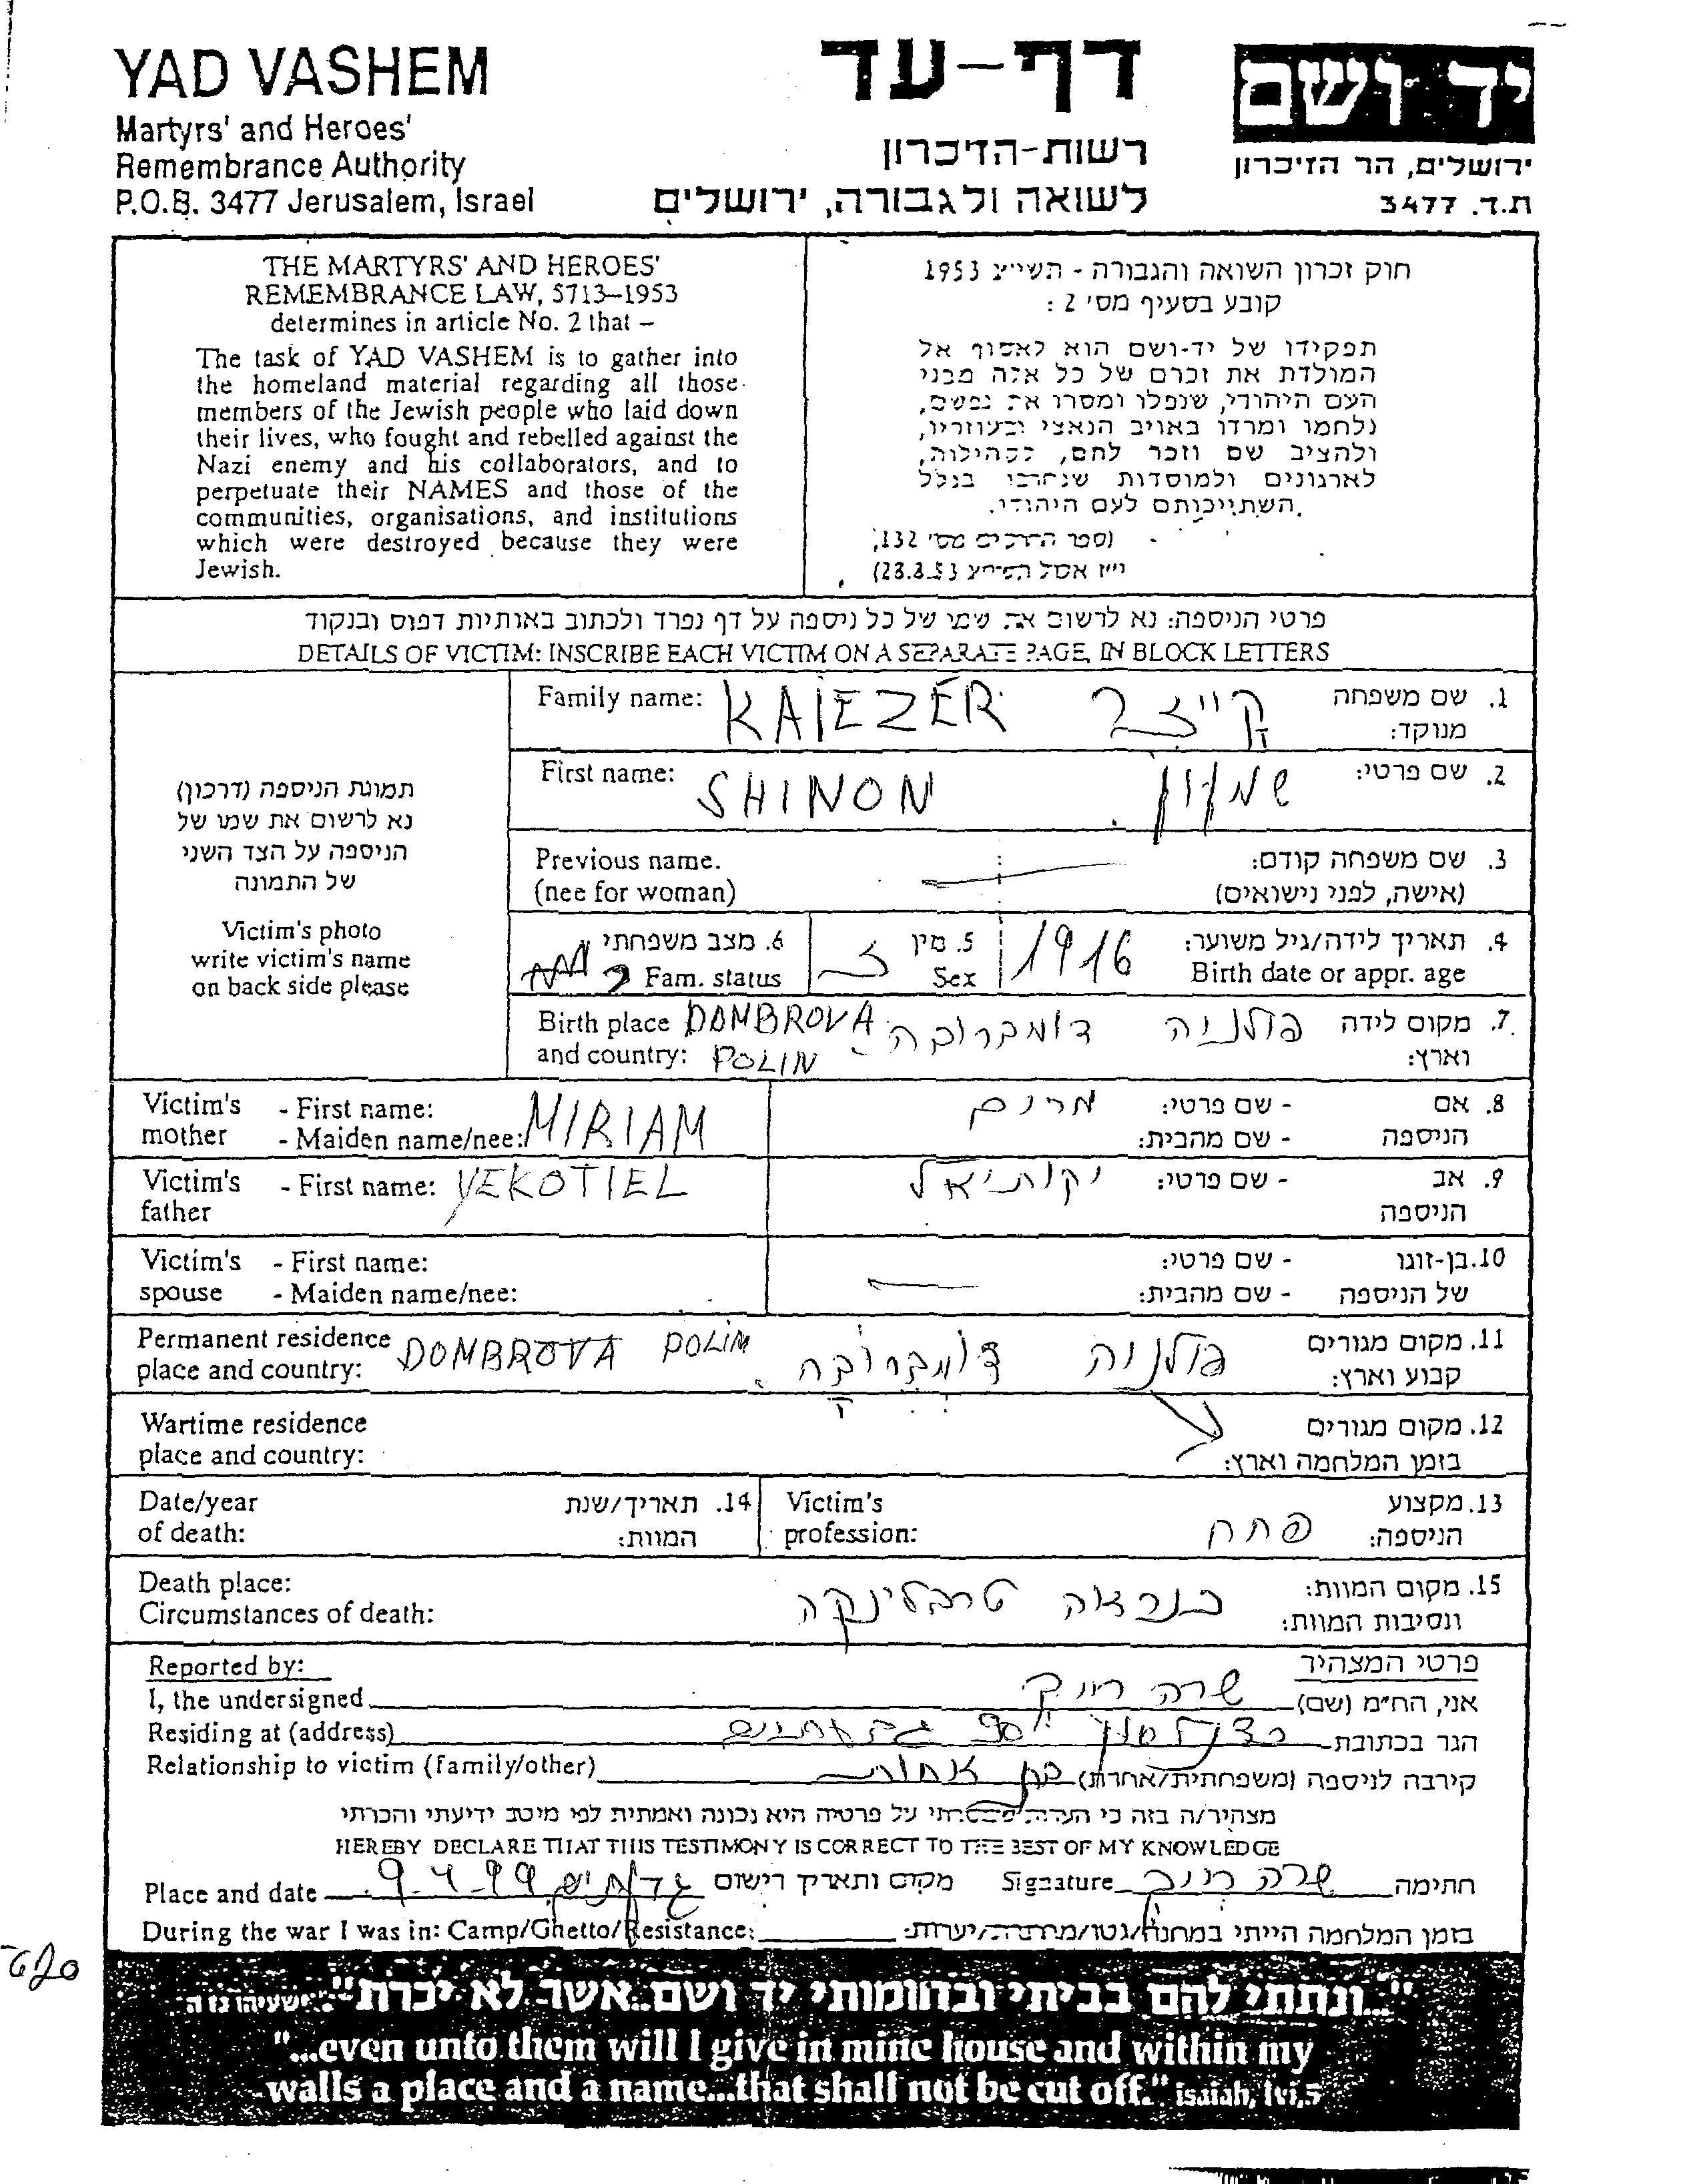 YAD VASHEM
Martyrs' and Heroes'
Remembrance Authority
P.O.B. 3477 Jerusalem, Israel
דף-עד
רשות-הזיכרון
לשואה ולגבורה, ירושלים
יד ושם
ירושלים, הר הזיכרון
ת.ד. 3477
THE MARTYRS' AND HEROES'
REMEMBRANCE LAW, 5713–1953
determines in article No. 2 that –
The task of YAD VASHEM is to gather into
the homeland material regarding all those
members of the Jewish people who laid down
their lives, who fought and rebelled against the
Nazi enemy and his collaborators, and to
perpetuate their NAMES and those of the
communities, organisations, and institutions
which were destroyed because they were
Jewish.
חוק זכרון השואה והגבורה - תשי"ג 1953
קובע בסעיף מס' 2 :
תפקידו של יד-ושם הוא לאסוף אל
המולדת את זכרם של כל אלה מבני
העם היהודי, שנפלו ומסרו את נפשם,
נלחמו ומרדו באויב הנאצי ובעוזריו,
ולהציב שם וזכר להם, לקהילות,
לארגונים ולמוסדות שנחרבו בגלל
השתייכותם לעם היהודי.
(ספר החוקים מס' 132,
פרטי הניספה: נא לרשום את שמו של כל ניספה על דף נפרד ולכתוב באותיות דפוס ובנקוד
DETAILS OF VICTIM: INSCRIBE EACH VICTIM ON A SEPARATE PAGE, IN BLOCK LETTERS
תמונת הניספה (דרכון)
נא לרשום את שמו של
הניספה על הצד השני
של התמונה
Victim's photo
write victim's name
on back side please
Family name: KAIEZER קייזר 1. שם משפחה
מנוקד:
First name: SHINON שמעון 2. שם פרטי:
Previous name. 3. שם משפחה קודם:
(nee for woman) (אישה, לפני נישואים)
6. מצב משפחתי 5. מין 1916 4. תאריך לידה/גיל משוער:
ר Fam. status ז Sex Birth date or appr. age
Birth place DOMBROVA דומברובה פולניה 7. מקום לידה
and country: POLIN וארץ:
Victim's - First name: מרים - שם פרטי: 8. אם
mother - Maiden name/nee: MIRIAM - שם מהבית: הניספה
Victim's - First name: YEKOTIEL יקותיאל - שם פרטי: 9. אב
father הניספה
Victim's - First name: - שם פרטי: 10. בן-זוגו
spouse - Maiden name/nee: - שם מהבית: של הניספה
Permanent residence DOMBROVA POLIN דומברובה פולניה 11. מקום מגורים
place and country: קבוע וארץ:
Wartime residence 12. מקום מגורים
place and country: בזמן המלחמה וארץ:
Date/year 14. תאריך/שנת Victim's 13. מקצוע
of death: המוות: profession: פחח הניספה:
Death place: כנראה טרבלינקה 15. מקום המוות:
Circumstances of death: ונסיבות המוות:
Reported by: פרטי המצהיר
I, the undersigned שרה אני, הח"מ (שם)
Residing at (address) כצנלסון 90 גבעתיים הגר בכתובת
Relationship to victim (family/other) בת אחות קירבה לניספה (משפחתית/אחרת)
מצהיר/ה בזה כי העדות שמסרתי על פרטיה היא נכונה ואמתית לפי מיטב ידיעתי והכרתי
HEREBY DECLARE THAT THIS TESTIMONY IS CORRECT TO THE BEST OF MY KNOWLEDGE
Place and date 9.4.99 גבעתיים מקום ותאריך רישום Signature שרה חתימה
During the war I was in: Camp/Ghetto/Resistance: בזמן המלחמה הייתי במחנה/גטו/מחתרת/יערות:
"...ונתתי להם בביתי ובחומותי יד ושם...אשר לא יכרת" ישעיהו נו ה
"...even unto them will I give in mine house and within my
walls a place and a name...that shall not be cut off." isaiah, lvi,5